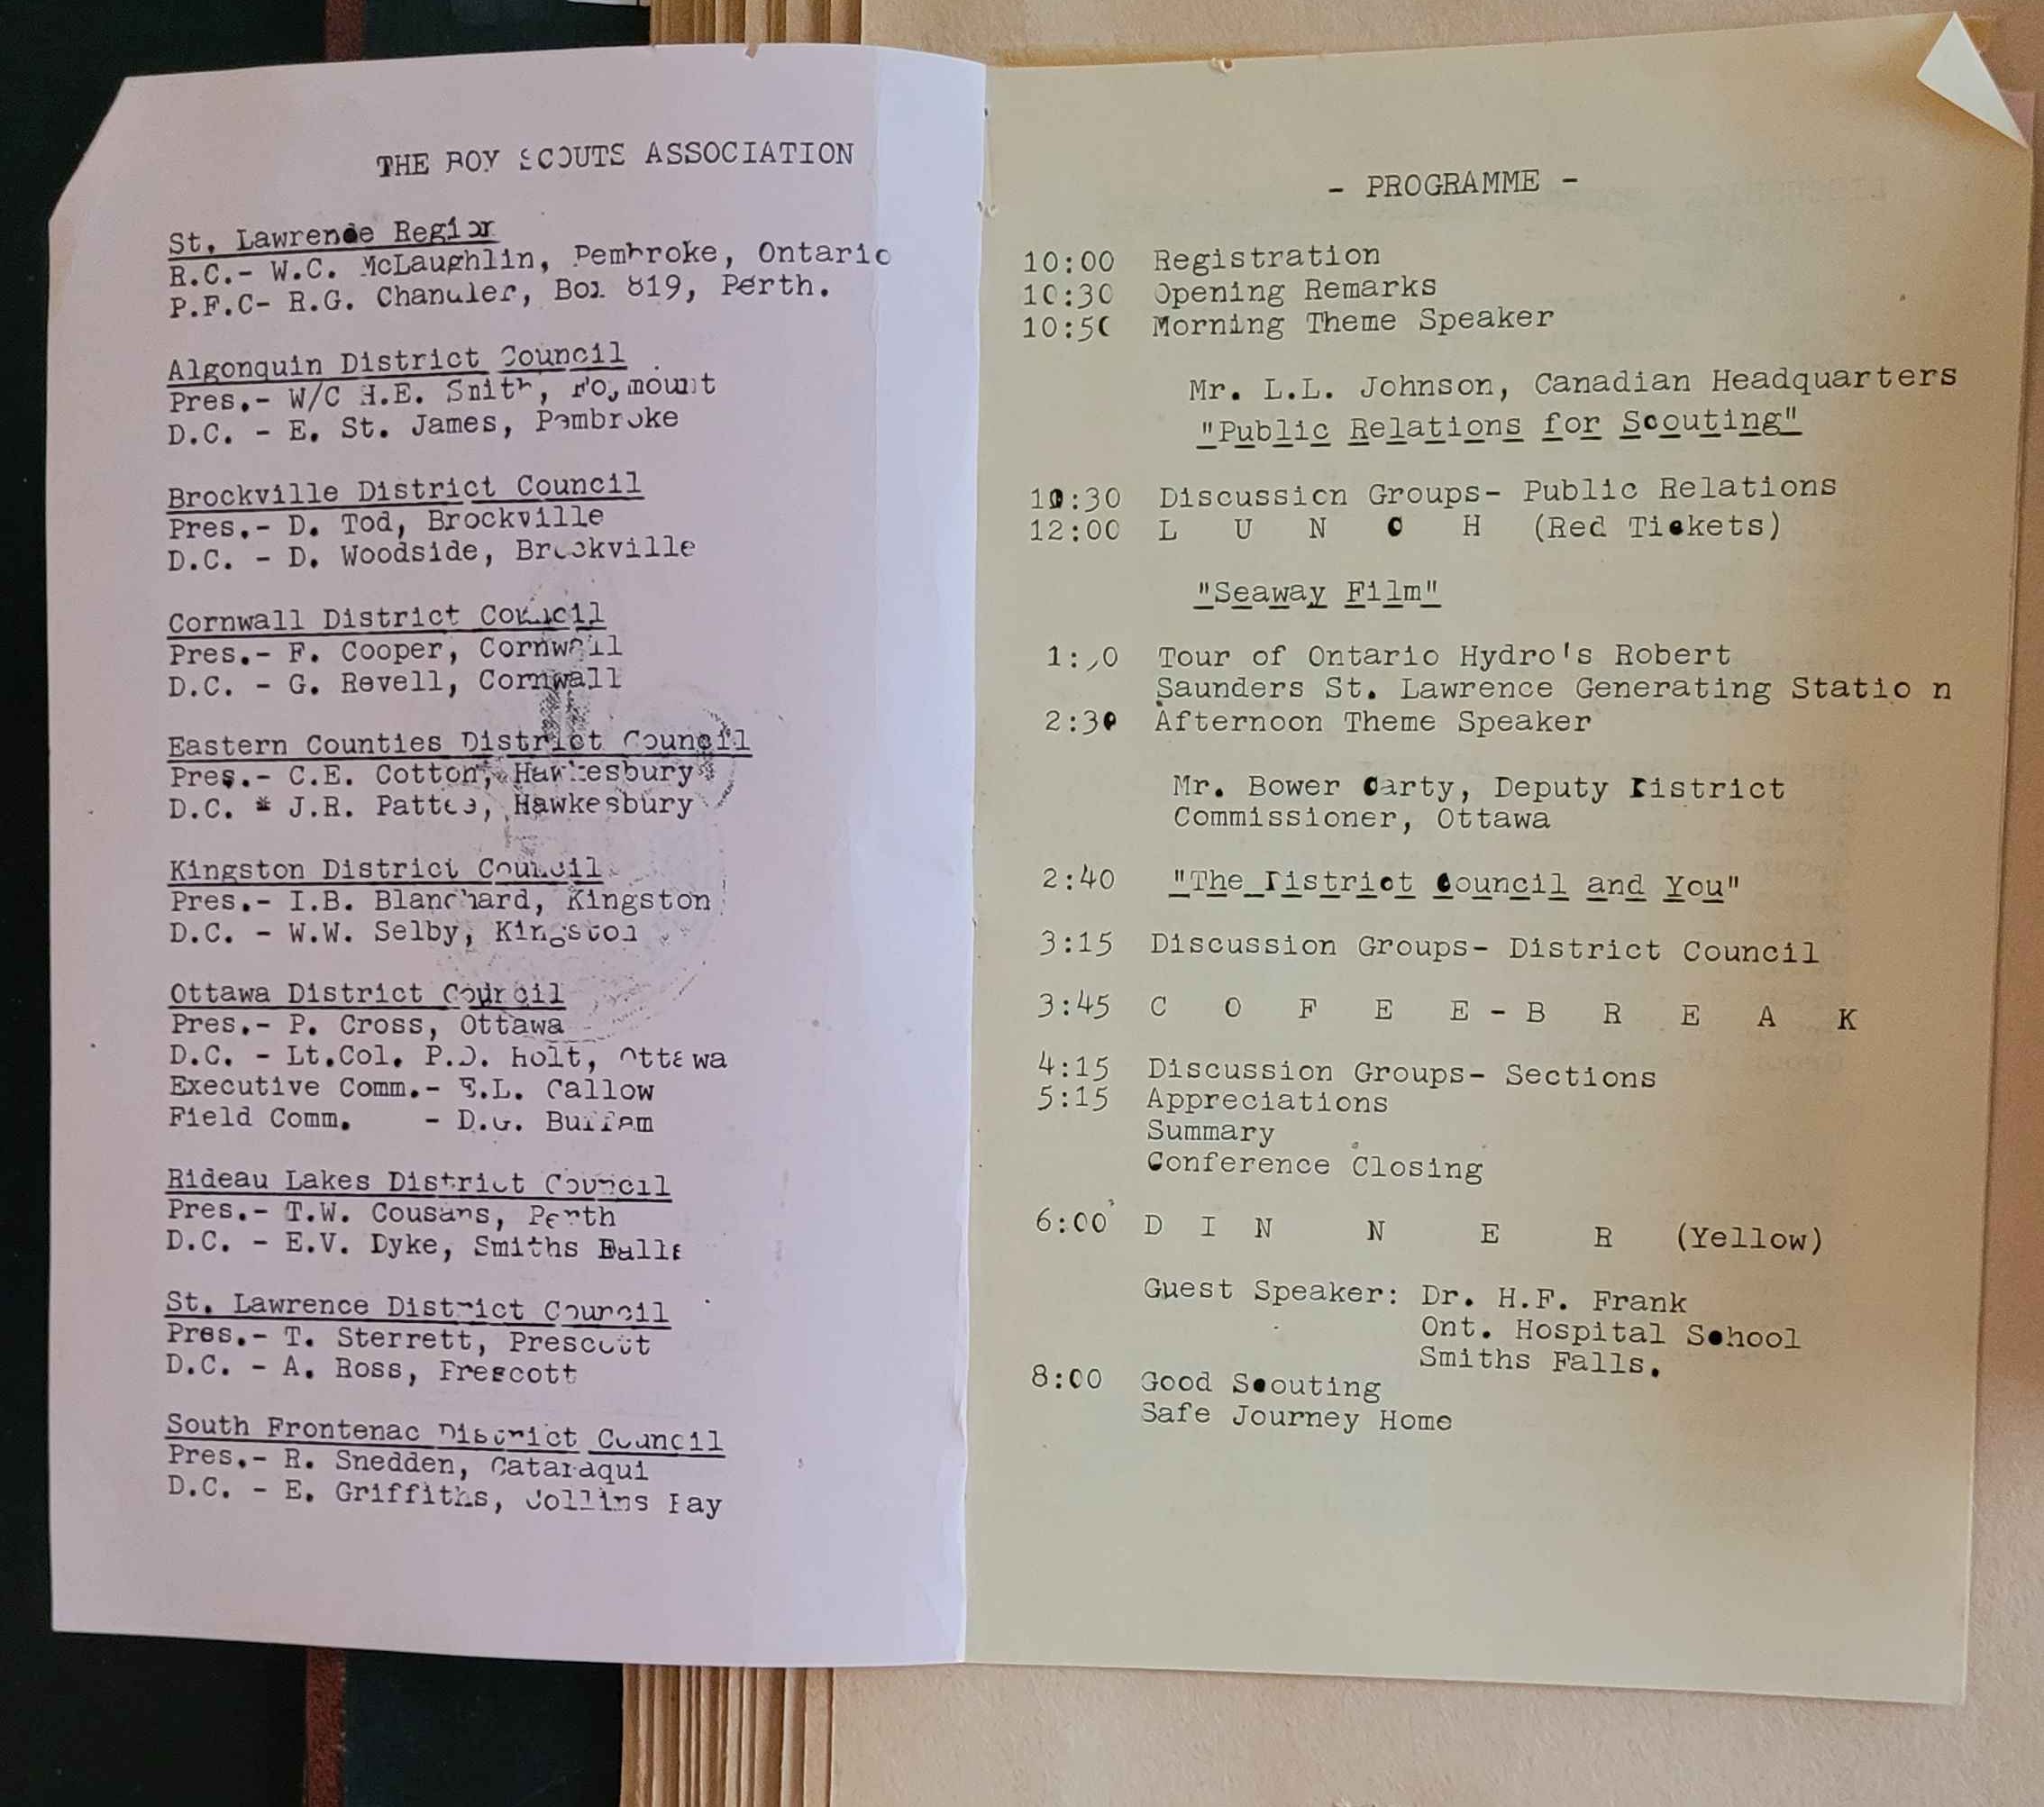 THE BOY SCOUTS ASSOCIATION
St. Lawrence Region
R.C.- W.C. McLaughlin, Pembroke, Ontario
P.F.C- R.G. Chandler, Box 819, Perth.
Algonquin District Council
Pres.- W/C H.E. Smith,
D.C. - E. St. James, Pembroke
Brockville District Council
Pres.- D. Tod, Brockville
D.C. - D. Woodside, Brockville
Cornwall District Council
Pres.- F. Cooper, Cornwall
D.C. - G. Revell, Cornwall
Eastern Counties District Council
Pres.- C.E. Cotton, Hawkesbury
D.C. * J.R. Pattee, Hawkesbury
Kingston District Council
Pres.- I.B. Blanchard, Kingston
D.C. - W.W. Selby, Kingston
Ottawa District Council
Pres.- P. Cross, Ottawa
D.C. - Lt.Col. P.D. Holt, Ottawa
Executive Comm.- E.L. Callow
Field Comm. - D.G. Buffam
Rideau Lakes District Council
Pres.- T.W. Cousans, Perth
D.C. - E.V. Dyke, Smiths Falls
St. Lawrence District Council
Pres.- T. Sterrett, Prescott
D.C. - A. Ross, Prescott
South Frontenac District Council
Pres.- R. Snedden, Cataraqui
D.C. - E. Griffiths, Collins Bay
- PROGRAMME -
10:00 Registration
10:30 Opening Remarks
10:50 Morning Theme Speaker
Mr. L.L. Johnson, Canadian Headquarters
"Public Relations for Scouting"
10:30 Discussion Groups- Public Relations
12:00 L U N C H (Red Tickets)
"Seaway Film"
Tour of Ontario Hydro's Robert
Saunders St. Lawrence Generating Statio n
2:30 Afternoon Theme Speaker
Mr. Bower Carty, Deputy District
Commissioner, Ottawa
2:40 "The District Council and You"
3:15 Discussion Groups- District Council
3:45 C O F E E - B R E A K
4:15 Discussion Groups- Sections
5:15 Appreciations
Summary
Conference Closing
6:00 D I N N E R (Yellow)
Guest Speaker: Dr. H.F. Frank
Ont. Hospital School
Smiths Falls.
8:00 Good Scouting
Safe Journey Home